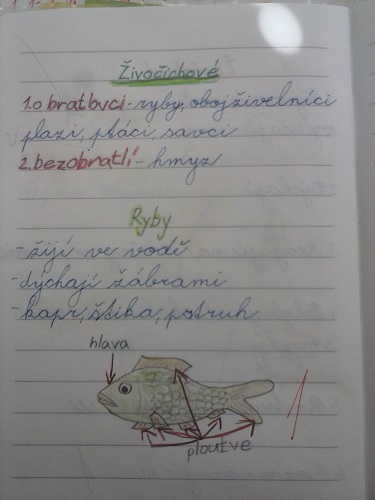 Živočichové
1. obratlovci - ryby, obojživelníci
plazi, ptáci, savci
2. bezobratlí - hmyz
Ryby
- žijí ve vodě
- dýchají žábrami
- kapr, štika, pstruh
hlava
ploutve
1